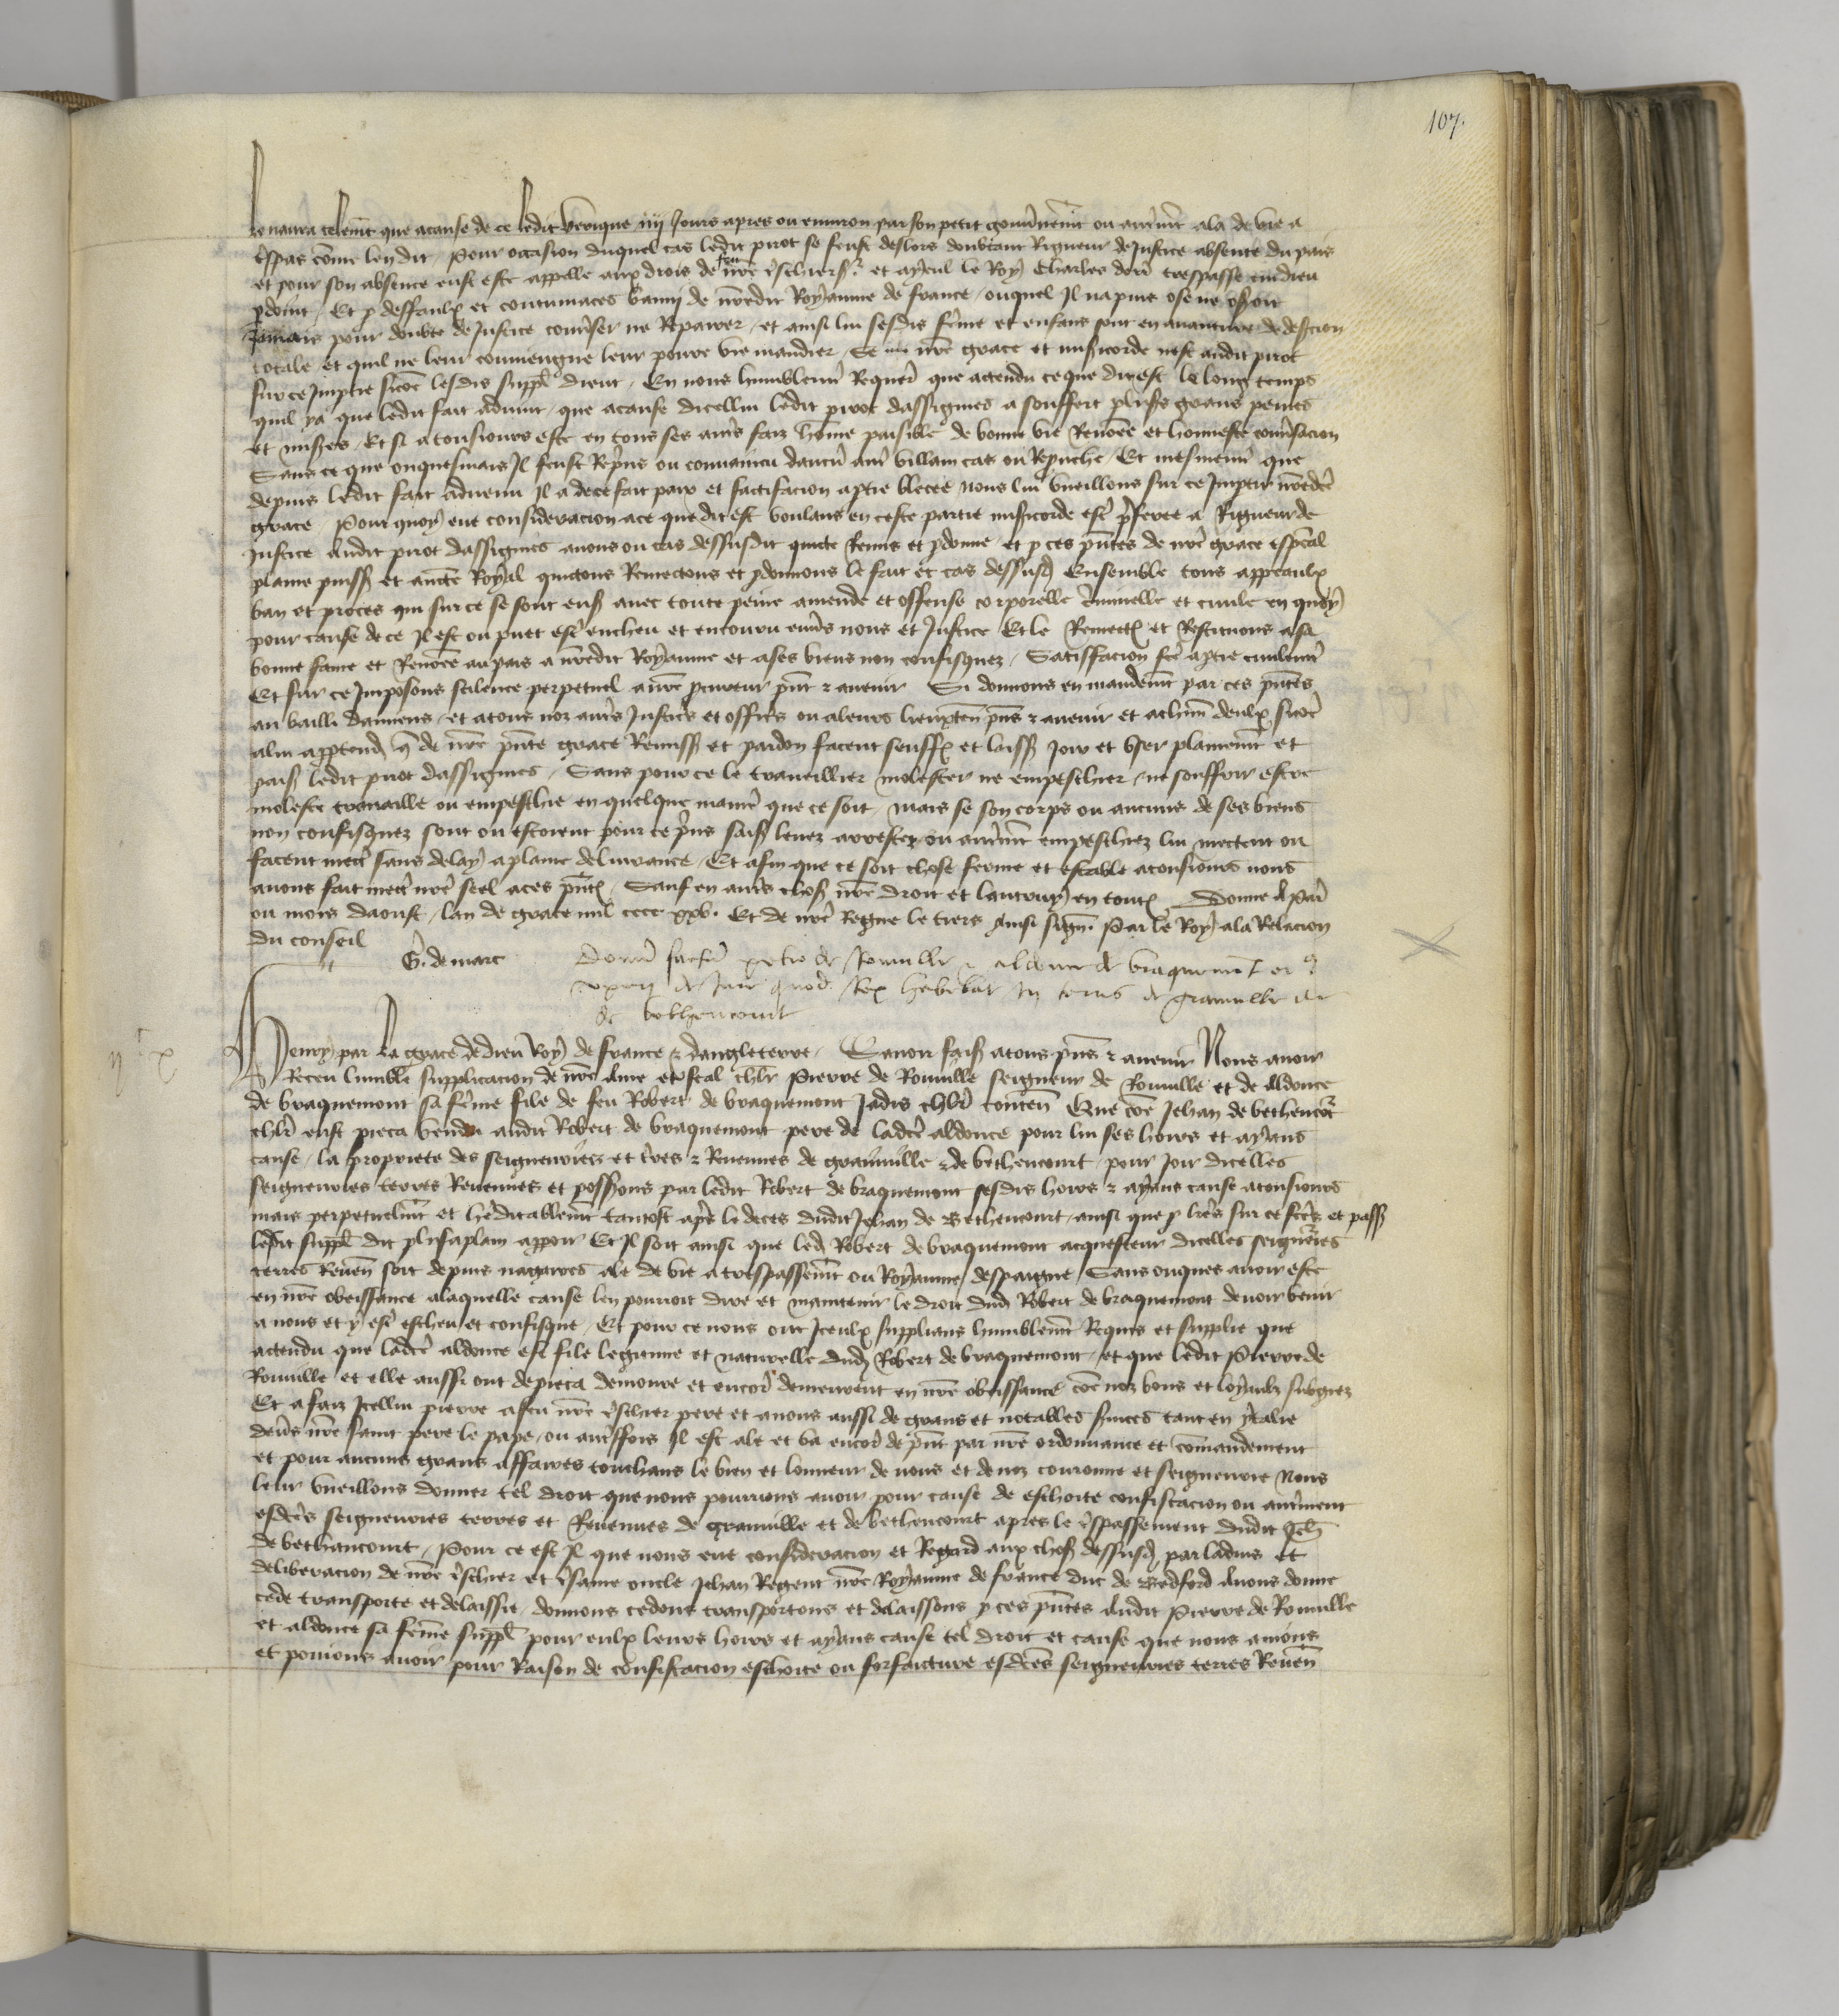 107.
le navra telemt que acause de ce ledit berenque iiij jours apres ou environ par son petit gouvnemt ou autrmt ala de vie a
tspas come len dit. Pour occasion duquel cas ledit pirot se feust deslors doubtant Rigueur de Justice absente du pais
et pour son absence eust este appelle aux drois de feu nre tschier sr et ayeul le Roy Charles derr trespasse cui dieu
pdoint, Et p deffaulx et contumaces banny de nredit Royaume de france, ouquel Il na puis ose ne oseroit
Jamais pour doubte de Justice convser ne Reparer, et ainsi lui sesdis feme et enfans sont en avanture de desercion
totale et quil ne leur conviengne leur povre vie mandier, Se nre grace et misicorde nest audit pirot
sur ce Imptie sicoe lesdis suppl dient, En nous humblemt Requert que attendu ce que dit est le long temps
quil ya que ledit fait advint, que acause dicellui ledit pirot dassigmes a souffert plusrs grans peines
et miseres, Et si a tousiours este en tous ses autrs faiz home paisible de bonne vie Renomee et honneste convsacion
Sans ce que onquesmais Il feust Reprins ou convaincu daucun autr villain cas ou Reprouche, Et mesmemt que
depuis ledit fait advenu Il a de ce fait paix et satisfacion aptie blecee nous lui vueillons sur ce Impartir nredcte
grace, Pour quoy eue consideracion ace que dit est voulans en ceste partie misicorde estre preferee a Rigueur de
Justice Audit pirot dassigmes avons ou cas dessusdit quicte Remis et pdonne, et p ces pntes de nre grace especal
plaine puiss et aucte Royal quictons Remectons et pdonnons le fait et cas dessusd Ensemble tous appeaulx
ban et proces qui sur ce se sont ensuis avec toute peine amende et offense corporelle criminelle et civile en quoy
pour cause de ce Il est ou puet estre encheu et encouru envers nous et Justice Et le Remettons et Restituons asa
bonne fame et Renomee au pais a nredit Royaume et ases biens non confisquez, Satisfacion fce aptie civilemt
Et sur ce Imposons scilence perpetuel anre procureur pnt & avenir Si donnons en mandemt par ces pntes
au bailli damiens, et atous noz autrs Justics et offics ou aleurs lieuxten pns & avenir et achun deulx sicoe
alui appartend q de nre pnte grace Remiss et pardon facent seuffr et laiss joir et user plainemt et
paisibl ledit pirot dassigmes, Sans pour ce le traveillier molester ne empeschier, ne souffrir estre
moleste travaille ou empeschie en quelque maniere que ce soit, mais se son corps ou aucuns de ses biens
non confisquez sont ou estoient pour ce prins saisiz levez arrestez ou autrmt empeschiez lui mectent ou
facent mectre sans delay aplaine delivrance, Et afin que ce soit chose ferme et estable atousiours nous
avons fait mectre nre seel aces pntes, Sauf en autrs choses nre droit et lautruy en toutes Donne A Paris
ou mois daoust, lan de grace mil cccc xxv. Et de nre Regne le tiers Ainsi signe. Par le Roy ala Relacion
du conseil
G. de marc
Donum factum petro de Rouville & aldonce de braquemont ei9
uxori de Jure quod Rex habebat in terris de grainville et
de bethencourt
Henry par la grace de dieu Roy de france & dangleterre. Savoir faisons atous pns & avenir Nous avoir
Receu lumble supplicacion de nre Ame et feal chlr Pierre de Rouville seigneur de Rouville et de Aldonce
de braquemont sa feme file de feu Robert de braquemont Jadis chlr conten Que coe Jehan de bethencot
chlr eust pieca vendu audit Robert de braquemont pere de ladcte aldonce pour lui ses hoirs et ayans
cause, la propriete des seigneuries et tres & Revenues de grainville & de bethencourt, pour joir dicelles
seigneuries terres Revenues et possessions par ledit Robert de braquemont sesdis hoirs & ayans cause atousiours
mais perpetuelmt et heritablemt tantost apres le deces dudit Jehan de Bethencourt, ainsi que p lres sur ce fctes et pass
ledit suppl dit plus aplain apparoir Et Il soit ainsi que led Robert de braquemont acquesteur dicelles seigneuries
terres Reven soit depuis nagaires ale de vie a trespassemt ou Royaume despaigne Sans onques avoir este
en nre obeissance alaquelle cause len pourroit dire et maintenir le droit dud Robert de braquemont devoir venir
a nous et y estre escheu et confisque, Et pour ce nous ont Iceulx supplians humblemt Requis et supplie que
attendu que ladcte aldonce est file legitime et naturelle dud Robert de braquemont, et que ledit Pierre de
Rouville et elle aussi ont depieca demoure et encores demeurent en nre obeissance coe noz bons et loyaulx subgiez
Et a faiz Icellui pierre afeu nre tschier pere et anous aussi de grans et notables services tant en ytalie
devs nre saint pere le pape, ou autrsfois Il est ale et va encores de pnt par nre ordonnance et comandement
et pour aucuns grans affaires touchans le bien et lonneur de nous et de noz couronne et seigneurie Nous
leur vueillons donner tel droit que nous pourrions avoir pour cause de eschoite confiscacion ou autrment
esdctes seigneuries terres et Revenues de grainville et de bethencourt apres le tspassement dudit Jeh
de bethancourt, Pour ce est Il que nous eue consideracion et Regard aux choses dessusd, par ladvis et
deliberacion de nre tschier et tsame oncle Jehan Regent nre Royaume de france duc de Bedford Avons donne
cede transporte et delaissie, donnons cedons transportons et delaissons p ces pntes Audit Pierre de Rouville
et aldonce sa feme suppl pour eulx leurs hoirs et ayans cause tel droit et cause que nous avions
et povions avoir pour Raison de confiscacion eschoite ou forfaicture esdctes seigneuries terres Reven